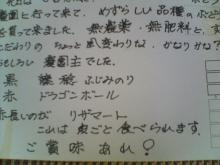 農園に行って来て、めずらしい品種のぶど
を買って来ました。無農薬・無肥料と、す
こだわりのちょっと風変わりな、かなりかな?
おもしろい農園主でした。
黒 ふじみのり
赤 ドラゴンボール
赤長いのが リザマート
これは皮ごと食べられます。
ご賞味あれ!